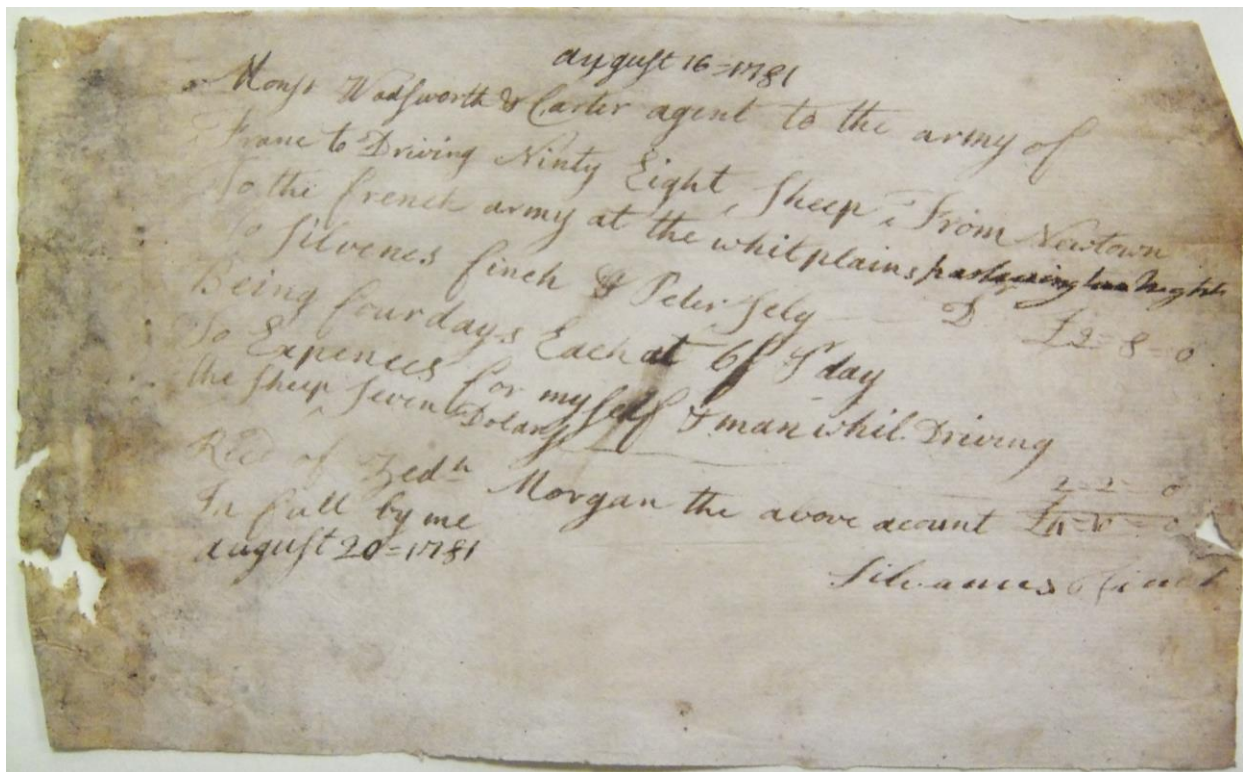 august 16=1781
Wadsworth & Carter agent to the army of
Frane to Driving Ninty Eight Sheep From Newtown
To the french army at the whitplains
To Silvenes finch & Peter Sely D £2=8=0
Being four days Each at 6/ Pr day
To Expences for myself & man whil Driving
the sheep seven Dolars
2=2=0
Recd of Zedh Morgan the above acount £4=10=0
In full by me
august 20=1781
Silvanues finch